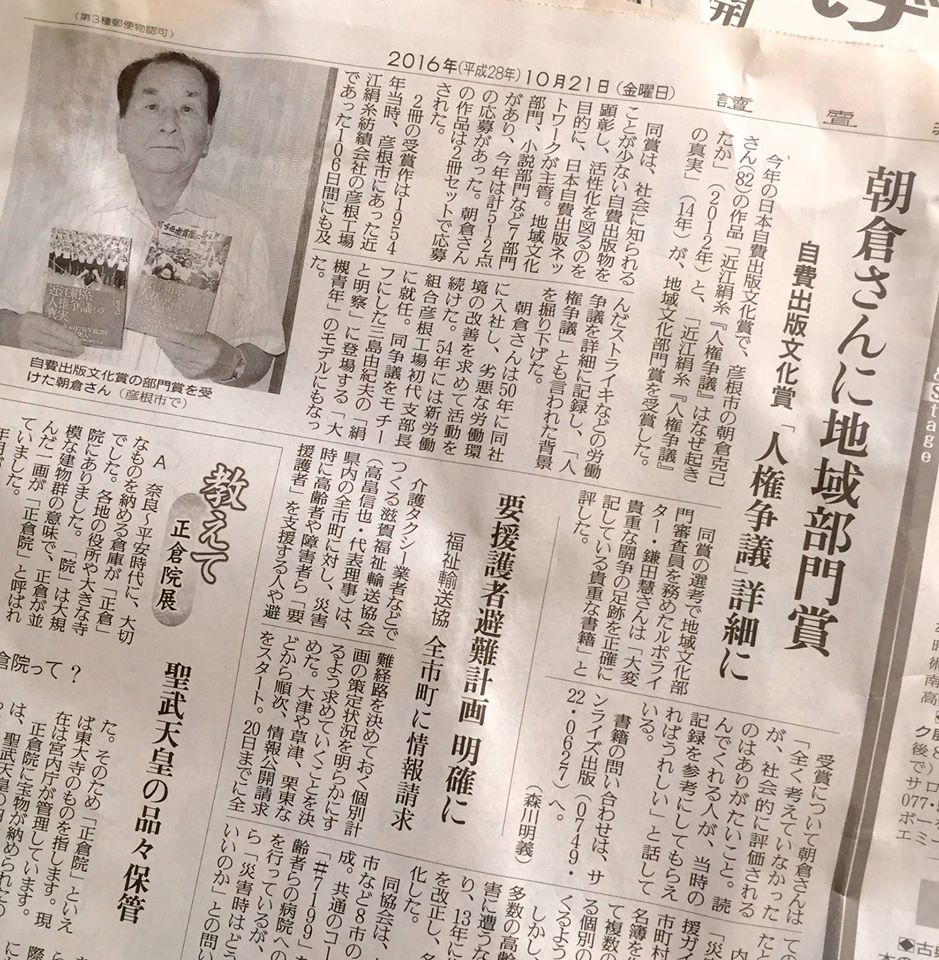 (第3種郵便物認可)
2016年(平成28年)10月21日(金曜日)
讀賣
朝倉さんに地域部門賞
自費出版文化賞「人権争議」詳細に
今年の日本自費出版文化賞で、彦根市の朝倉克己
さん(82)の作品「近江絹糸『人権争議』はなぜ起き
たか」(2012年)と、「近江絹糸『人権争議』
の真実」(14年)が、地域文化部門賞を受賞した。
同賞は、社会に知られる
ことが少ない自費出版物を
顕彰し、活性化を図るのを
目的に、日本自費出版ネッ
トワークが主管。地域文化
部門、小説部門など7部門
があり、今年は計512点
の応募があった。朝倉さん
の作品は2冊セットで応募
された。
2冊の受賞作は1954
年当時、彦根市にあった近
江絹糸紡績会社の彦根工場
であった106日間にも及
んだストライキなどの労働
争議を詳細に記録し、「人
権争議」とも言われた背景
を掘り下げた。
朝倉さんは50年に同社
に入社し、劣悪な労働環
境の改善を求めて活動を
続けた。54年には新労働
組合彦根工場初代支部長
に就任。同争議をモチー
フにした三島由紀夫の「絹
と明察」に登場する「大
槻青年」のモデルにもなっ
た。
同賞の選考で地域文化部
門審査員を務めたルポライ
ター・鎌田慧さんは「大変
貴重な闘争の足跡を正確に
記録している貴重な書籍」と
評した。
受賞について朝倉さんは
「全く考えていなかった
が、社会的に評価される
のはありがたいこと。読
んでくれる人が、当時の
記録を参考にしてもらえ
ればうれしい」と話して
いる。
書籍の問い合わせは、サ
ンライズ出版(0749・
22・0627)へ。
(森川明義)
自費出版文化賞の部門賞を受
けた朝倉さん(彦根市で)
要援護者避難計画 明確に
福祉輸送協 全市町に情報請求
介護タクシー業者などで
つくる滋賀福祉輸送協会
(高畠信也・代表理事)は、
県内の全市町に対し、災害
時に高齢者や障害者ら「要
援護者」を支援する人や避
難経路を決めておく個別計
画の策定状況を明らかにす
るよう求めていくことを決
めた。大津や草津、栗東な
どから順次、情報公開請求
をスタート。20日までに全
市など8市の
成。共通のコー
「#7199」
を行っているが、
齢者らの病院への
ら「災害時はどう
いいのか」との問い
同協会は、
害に遭うな
り、13年に
を改正し、
化した。
しかし、
多数の高齢
教えて
正倉院展
聖武天皇の品々保管
倉院って?
A 奈良〜平安時代に、大切
なものを納める倉庫が「正倉」
でした。各地の役所や大きな寺
院にありました。「院」は大規
模な建物群の意味で、正倉が並
んだ一画が「正倉院」と呼ばれ
ていました。
た。そのため「正倉院」といえ
ば東大寺のものを指します。現
在は宮内庁が管理しています。
正倉院に宝物が納められたの
は、聖武天皇の
Stage